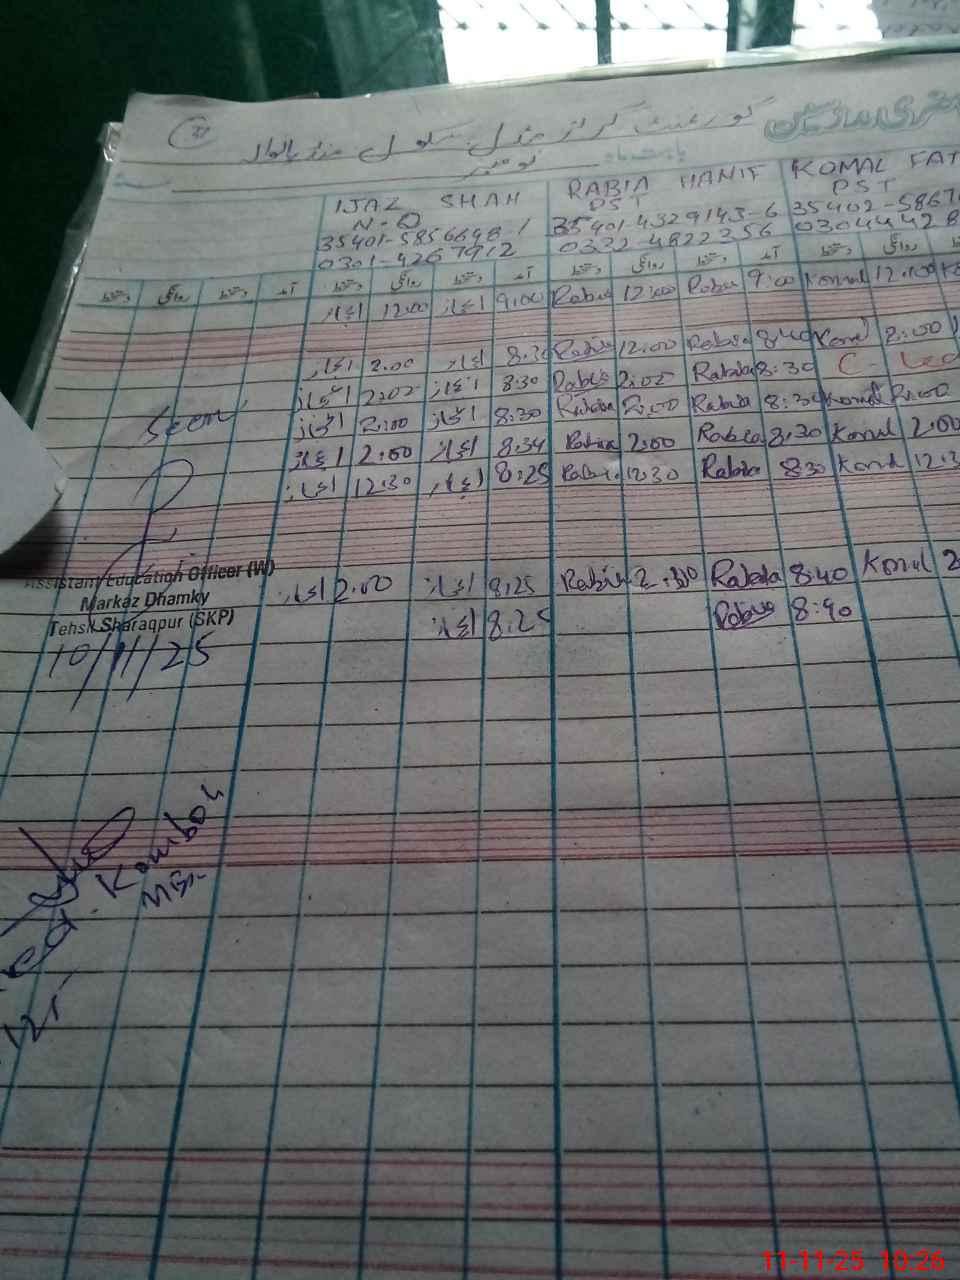 گورنمنٹ گرلز مڈل سکول
حاضری مدرسین
بابت ماہ نومبر
IJAZ SHAH RABIA HANIF KOMAL FAT
N-Q PST PST
35401-5856698-1 35401-4329143-6 35402-5867
0301-4267912 0332-4822356 03044428
دستخط روانگی دستخط آمد دستخط روانگی دستخط آمد دستخط روانگی دستخط آمد دستخط روانگی
اعجاز 12.00 اعجاز 9.00 Rabia 12:00 Rabia 9:00 Komal 12:00
اعجاز 2.00 اعجاز 8.30 Rabia 12.00 Rabia 8:40 Komal 2:00
اعجاز 2.00 اعجاز 8:30 Rabia 2:00 Rabia 8:30 C-Lea
اعجاز 2:00 اعجاز 8:30 Rabia 2:00 Rabia 8:30 Komal 2:00
اعجاز 2:00 اعجاز 8:34 Rabia 2:00 Rabia 8:30 Komal 2:00
اعجاز 12.30 اعجاز 8:25 Rabia 12:30 Rabia 8:30 Komal 12:3
Seen
Assistant Education Officer (W)
Markaz Dhamky
Tehsil Sharaqpur (SKP)
10/11/25
اعجاز 2.00 اعجاز 8.25 Rabia 2:30 Rabia 8:40 Komal 2
اعجاز 8.25 Rabia 8:40
Kamboh
11-11-25 10:26